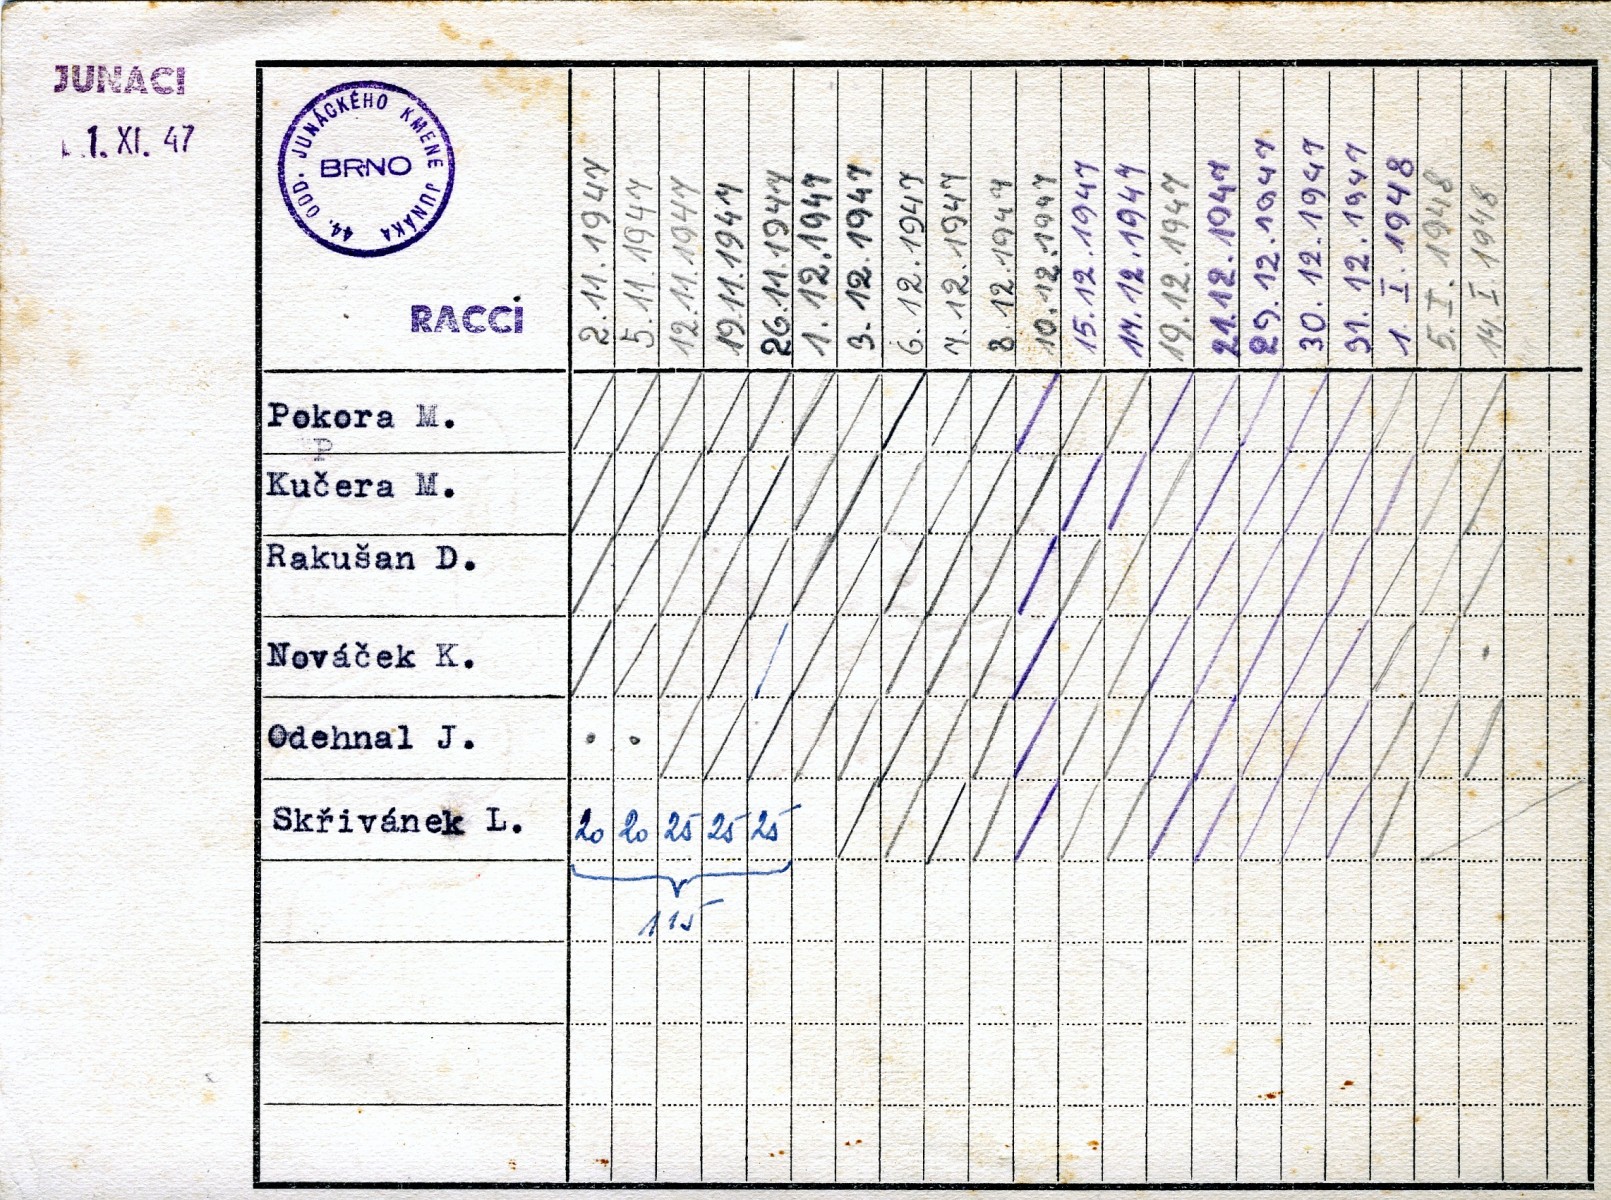 JUNÁCI
1. XI. 47
44. ODD. JUNÁCKÉHO KMENE JUNÁKA
BRNO
RACCI
2.11.1947
5.11.1947
12.11.1947
19.11.1947
26.11.1947
1.12.1947
3.12.1947
6.12.1947
7.12.1947
8.12.1947
10.12.1947
15.12.1947
14.12.1947
19.12.1947
21.12.1947
29.12.1947
30.12.1947
31.12.1947
1. I. 1948
5. I. 1948
14. I. 1948
Pokora M.
P
Kučera M.
Rakušan D.
Nováček K.
Odehnal J.
Skřivánek L. 20 20 25 25 25
115